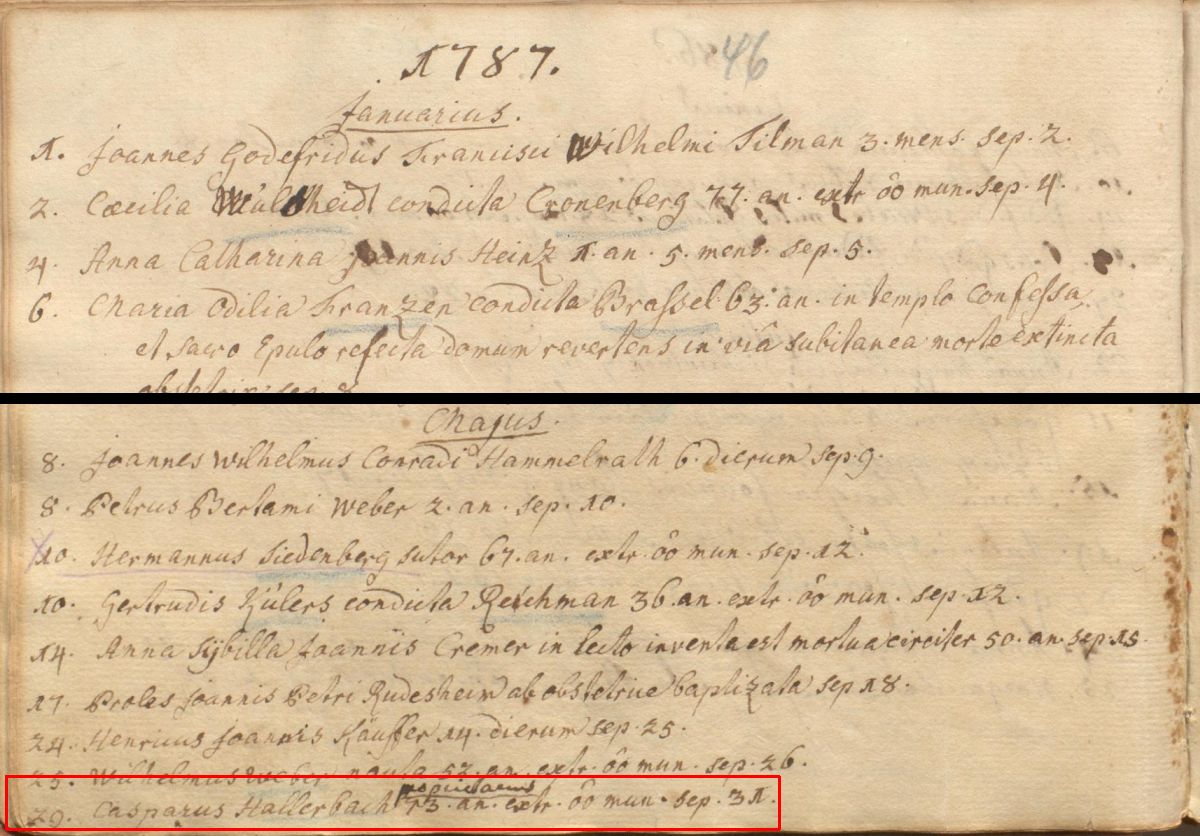 1787. 46
Januarius.
1. Joannes Godefridus Francisci Wilhelmi Tilman 3. mens. sep. 2.
2. Cæcilia condicta Cronenberg 77. an. extr. ôô mun. sep. 4.
4. Anna Catharina Joannis Heinz 1. an. 5. mens. sep. 5.
6. Maria Odilia Franzen condicta Brassel 63. an. in templo confessa
et sacro Epulo refecta domum revertens in viâ subitanea morte extincta
obstetrix sep. 8
Majus.
8. Joannes Wilhelmus Conradi Hammelrath 6. dierum sep. 9.
8. Petrus Bertami Weber 2. an. sep. 10.
10. Hermannus Siedenberg sutor 67. an. extr. ôô mun. sep. 12.
10. Gertrudis Külers condicta Reichman 36. an. extr. ôô mun. sep. 12.
14. Anna Sÿbilla Joannis Cremer in lecto inventa est mortua circiter 50. an. sep. 15
17. Proles Joannis Petri Rudesheim ab obstetrice baptizata sep 18.
24. Henricus Joannis Käuffer 14. dierum sep. 25.
25. Wilhelmus Weber nauta 52. an. extr. ôô mun. sep. 26.
29. Casparus Hallerbach 73. an. extr. ôô mun. sep. 31.